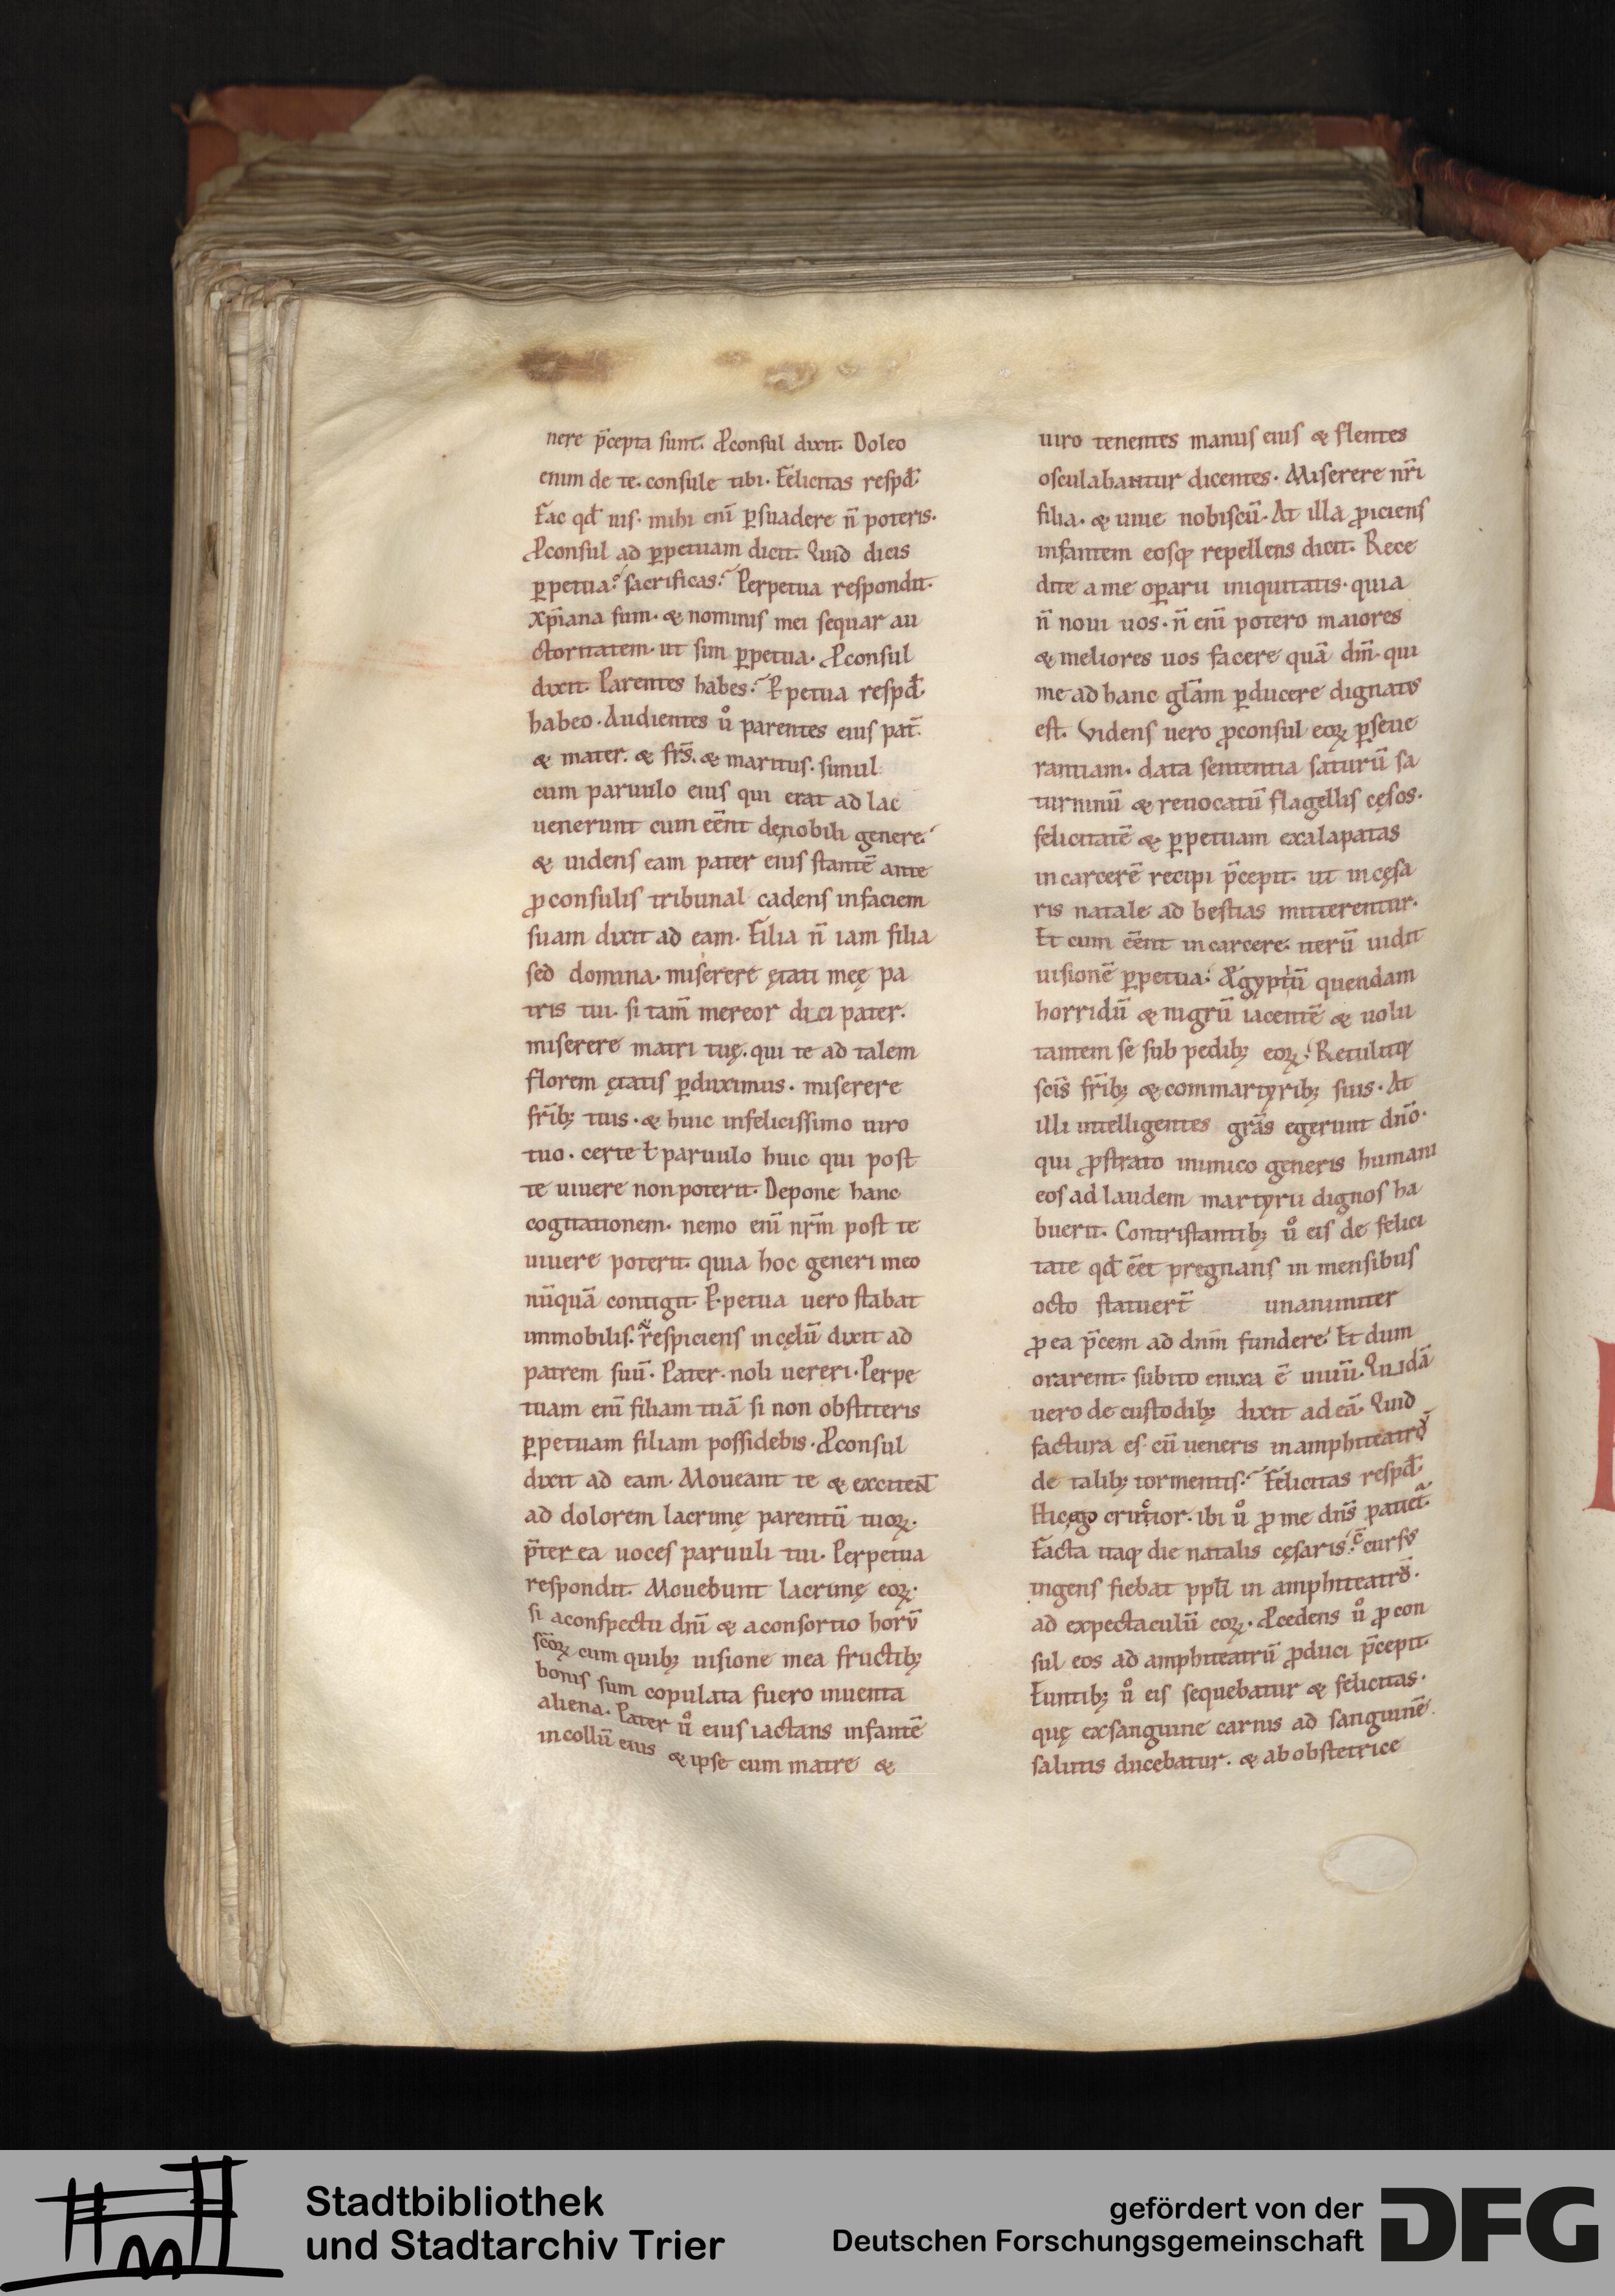 nere p̄cepta sunt. Ꝓconsul dixit. Doleo
enim de te. consule tibi. Felicitas respd̄.
Fac qd̄ uis. mihi eni̅ ꝑsuadere n̄ poteris.
Ꝓconsul ad ꝑpetuam dicit. Quid dicis
ꝑpetua? sacrificas? Perpetua respondit.
xp̄iana sum. & nominis mei sequar au
ctoritatem. ut sim ꝑpetua. Ꝓconsul
dixit. Parentes habes? Ꝑpetua respd̄.
habeo. Audientes ů parentes eius pat̄.
& mater. & fr̄s. & maritus. simul
cum paruulo eius qui erat ad lac
uenerunt cum ee̅nt de nobili genere.
& uidens eam pater eius stante̅ ante
ꝓconsulis tribunal cadens infaciem
suam dixit ad eam. Filia n̄ iam filia
sed domina. miserere ętati meę pa
tris tui. si tam̄ mereor dici pater.
miserere matri tuę. qui te ad talem
florem ętatis ꝑduximus. miserere
fr̄ib; tuis. & huic infelicissimo uiro
tuo. certe ł paruulo huic qui post
te uiuere non poterit. Depone hanc
cogitationem. nemo eni̅ nr̄m post te
uiuere poterit. quia hoc generi meo
nu̅qua̅ contigit. Ꝑpetua uero stabat
immobilis. & respiciens in cęlu̅ dixit ad
patrem suu̅. Pater. noli uereri. Perpe
tuam eni̅ filiam tua̅ si non obstiteris
ꝑpetuam filiam possidebis. Ꝓconsul
dixit ad eam. Moueant te & excitent
ad dolorem lacrimę parentu̅ tuoꝝ.
p̄terea uoces paruuli tui. Perpetua
respondit. Mouebunt lacrimę eoꝝ.
si aconspectu dn̄i & aconsortio horu̅
sc̄oꝝ cum quib; uisione mea fructib;
bonis sum copulata fuero inuenta
aliena. Pater ů eius iactans infante̅
in collu̅ eius & ipse cum matre &
uiro tenentes manus eius & flentes
osculabantur dicentes. Miserere nr̄i
filia. & uiue nobiscu̅. At illa ꝓiciens
infantem eosq; repellens dicit. Rece
dite a me oꝑarii iniquitatis. quia
n̄ noui uos. n̄ eni̅ potero maiores
& meliores uos facere qua̅ dn̄m. qui
me ad hanc gl̄am ꝑducere dignatꝰ
est. Videns uero ꝓconsul eoꝝ ꝑseue
rantiam. data sententia saturu̅ sa
turninu̅ & reuocatu̅ flagellis cęsos.
felicitate̅ & ꝑpetuam exalapatas
in carcere̅ recipi p̄cepit. ut in cęsa
ris natale ad bestias mitterentur.
Et cum ee̅nt in carcere. iteru̅ uidit
uisione̅ ꝑpetua. Ægyptiu̅ quendam
horridu̅ & nigru̅ iacente̅ & uolu
tantem se sub pedib; eoꝝ. Retulitq;
sc̄is fr̄ib; & commartyrib; suis. At
illi intelligentes gr̄as egerunt dn̄o.
qui ꝓstrato inimico generis humani
eos ad laudem martyrii dignos ha
buerit. Contristantib; ů eis de felici
tate qd̄ ee̅t pregnans in mensibus
octo statuer̄t unanimiter
ꝓ ea p̄cem ad dnm̄ fundere. Et dum
orarent. subito enixa e̅ uiuu̅. Quida̅
uero de custodib; dixit ad ea̅. Quid
factura es. cu̅ ueneris in amphiteatrꝰ
de talib; tormentis? Felicitas respd̄.
Hic ego crucior. ibi ů ꝓ me dn̄s patiet̄.
Facta itaq; die natalis cęsaris. c̄cursꝰ
ingens fiebat ppl̄i in amphiteatro̅.
ad expectaculu̅ eoꝝ. Ꝓcedens ů ꝓcon
sul eos ad amphiteatru̅ ꝓduci p̄cepit.
Euntib; ů eis sequebatur & felicitas.
quę exsanguine carnis ad sanguine̅
salutis ducebatur. & ab obstetrice
Stadtbibliothek
und Stadtarchiv Trier
gefördert von der
Deutschen Forschungsgemeinschaft
DFG